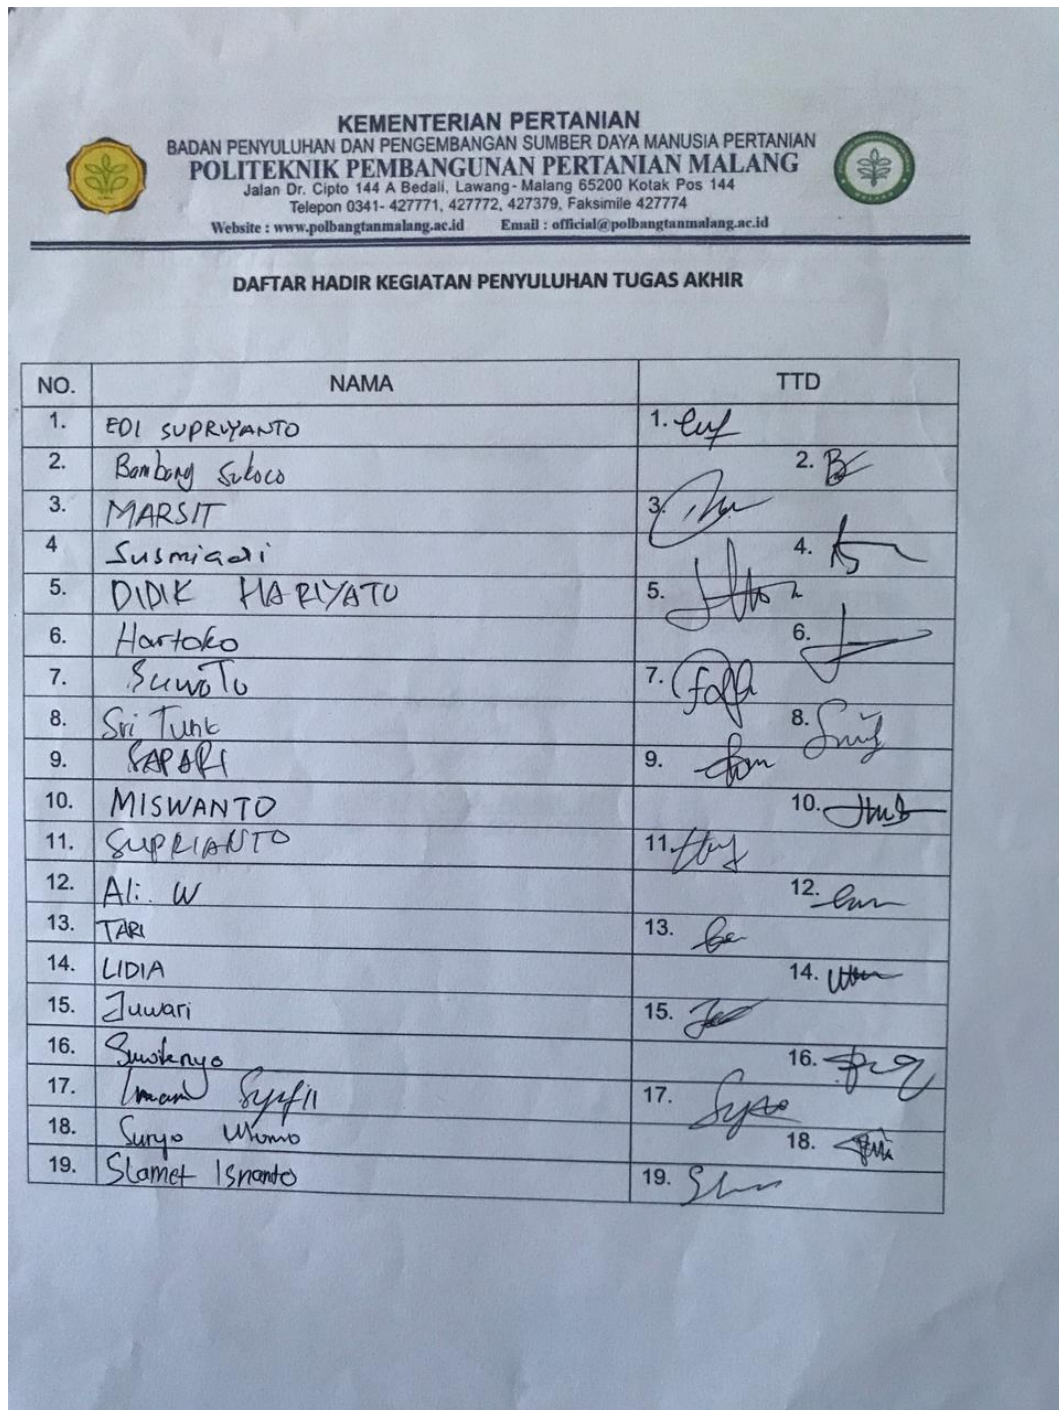 KEMENTERIAN PERTANIAN
BADAN PENYULUHAN DAN PENGEMBANGAN SUMBER DAYA MANUSIA PERTANIAN
POLITEKNIK PEMBANGUNAN PERTANIAN MALANG
Jalan Dr. Cipto 144 A Bedali, Lawang - Malang 65200 Kotak Pos 144
Telepon 0341- 427771, 427772, 427379, Faksimile 427774
Website : www.polbangtanmalang.ac.id Email : official@polbangtanmalang.ac.id
DAFTAR HADIR KEGIATAN PENYULUHAN TUGAS AKHIR
NO. NAMA TTD
1. EDI SUPRIYANTO 1.
2. Bambang Sukoco 2.
3. MARSIT 3.
4 Susmiadi 4.
5. DIDIK HARIYATO 5.
6. Hartoko 6.
7. SuwoTo 7.
8. Sri 8.
9. SAPARI 9.
10. MISWANTO 10.
11. SUPRIANTO 11.
12. Ali. W 12.
13. TARI 13.
14. LIDIA 14.
15. Juwari 15.
16. 16.
17. 17.
18. Suryo Utomo 18.
19. Slamet Isnanto 19.